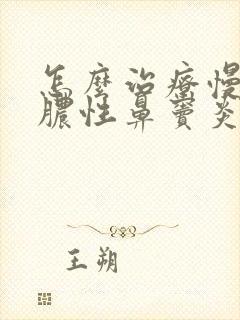 怎麼治療慢
膿性鼻竇炎
王朔